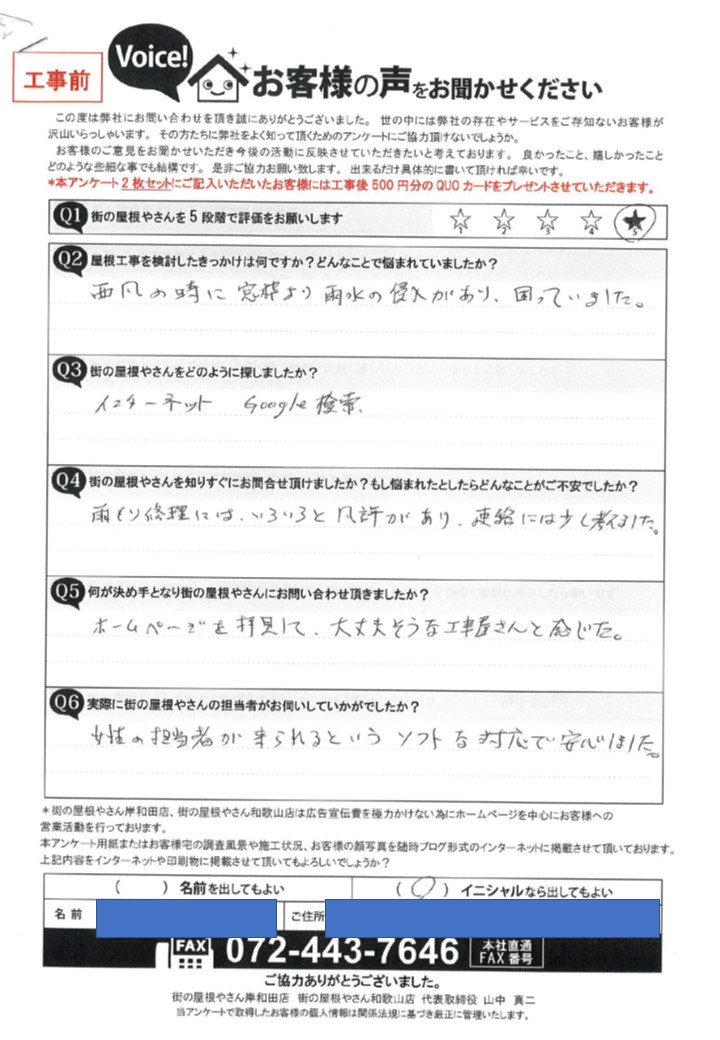 工事前
Voice!
お客様の声をお聞かせください
この度は弊社にお問い合わせを頂き誠にありがとうございました。 世の中には弊社の存在やサービスをご存知ないお客様が
沢山いらっしゃいます。 その方たちに弊社をよく知って頂くためのアンケートにご協力頂けないでしょうか。
お客様のご意見をお聞かせいただき今後の活動に反映させていただきたいと考えております。 良かったこと、嬉しかったこと
どのような些細な事でも結構です。 是非ご協力お願い致します。 出来るだけ具体的に書いて頂ければ幸いです。
*本アンケート2枚セットにご記入いただいたお客様には工事後500円分のQUOカードをプレゼントさせていただきます。
Q1 街の屋根やさんを5段階で評価をお願いします
1 2 3 4 5
Q2 屋根工事を検討したきっかけは何ですか?どんなことで悩まれていましたか?
西風の時に窓枠より雨水の侵入があり、困っていました。
Q3 街の屋根やさんをどのように探しましたか?
インターネット Google検索
Q4 街の屋根やさんを知りすぐにお問合せ頂けましたか?もし悩まれたとしたらどんなことがご不安でしたか?
雨もり修理には、いろいろと風評があり、連絡には少し考えました。
Q5 何が決め手となり街の屋根やさんにお問い合わせ頂きましたか?
ホームページを拝見して、大丈夫そうな工事屋さんと感じた。
Q6 実際に街の屋根やさんの担当者がお伺いしていかがでしたか?
女性の担当者が来られるという ソフトな対応で安心しました。
*街の屋根やさん岸和田店、街の屋根やさん和歌山店は広告宣伝費を極力かけない為にホームページを中心にお客様への
営業活動を行っております。
本アンケート用紙またはお客様宅の調査風景や施工状況、お客様の顔写真を随時ブログ形式のインターネットに掲載させて頂いております。
上記内容をインターネットや印刷物に掲載させて頂いてもよろしいでしょうか?
( ) 名前を出してもよい (○) イニシャルなら出してもよい
名前 ご住所
FAX 072-443-7646 本社直通 FAX番号
ご協力ありがとうございました。
街の屋根やさん岸和田店 街の屋根やさん和歌山店 代表取締役 山中 真二
当アンケートで取得したお客様の個人情報は関係法規に基づき厳正に管理いたします。